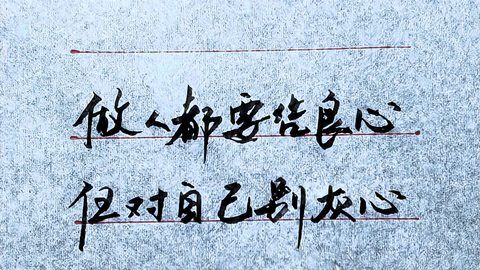 做人都要良心
但对自己别灰心